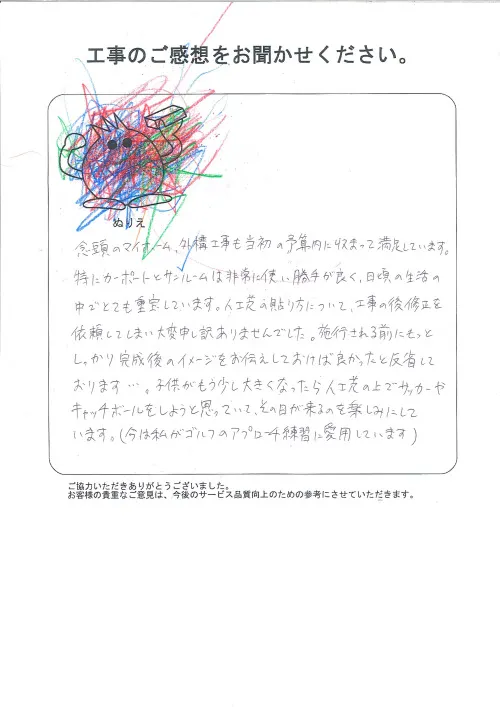 工事のご感想をお聞かせください。
ぬりえ
念願のマイホーム、外構工事も当初の予算内に収まって満足しています。
特にカーポートとサンルームは非常に使い勝手が良く、日頃の生活の
中でとても重宝しています。人工芝の貼り方について、工事の後修正を
依頼してしまい大変申し訳ありませんでした。施行される前にもっと
しっかり完成後のイメージをお伝えしておけば良かったと反省して
おります…。子供がもう少し大きくなったら人工芝の上でサッカーや
キャッチボールをしようと思っていて、その日が来るのを楽しみにして
います。(今は私がゴルフのアプローチ練習に愛用しています)
ご協力いただきありがとうございました。
お客様の貴重なご意見は、今後のサービス品質向上のための参考にさせていただきます。